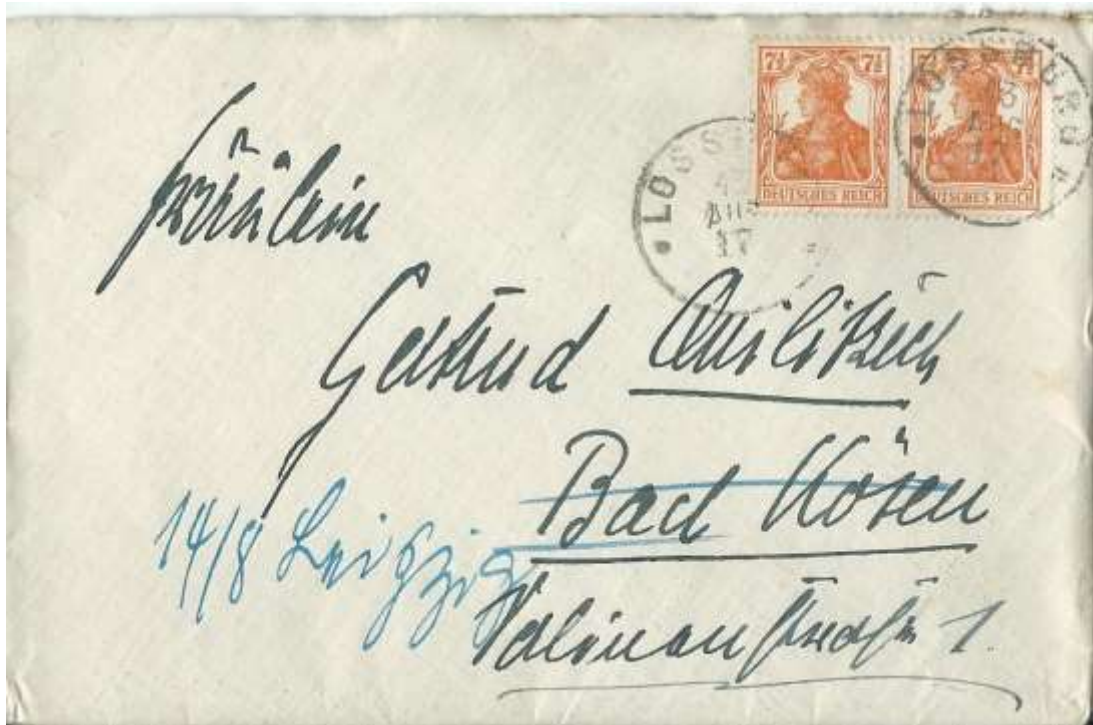 7½ 7½
DEUTSCHES REICH DEUTSCHES REICH
LOSSBURG
3
AUG
17
Fräulein
Gertrud
Bad Kösen
14/8 Leipzig
Salinenstraße 1.